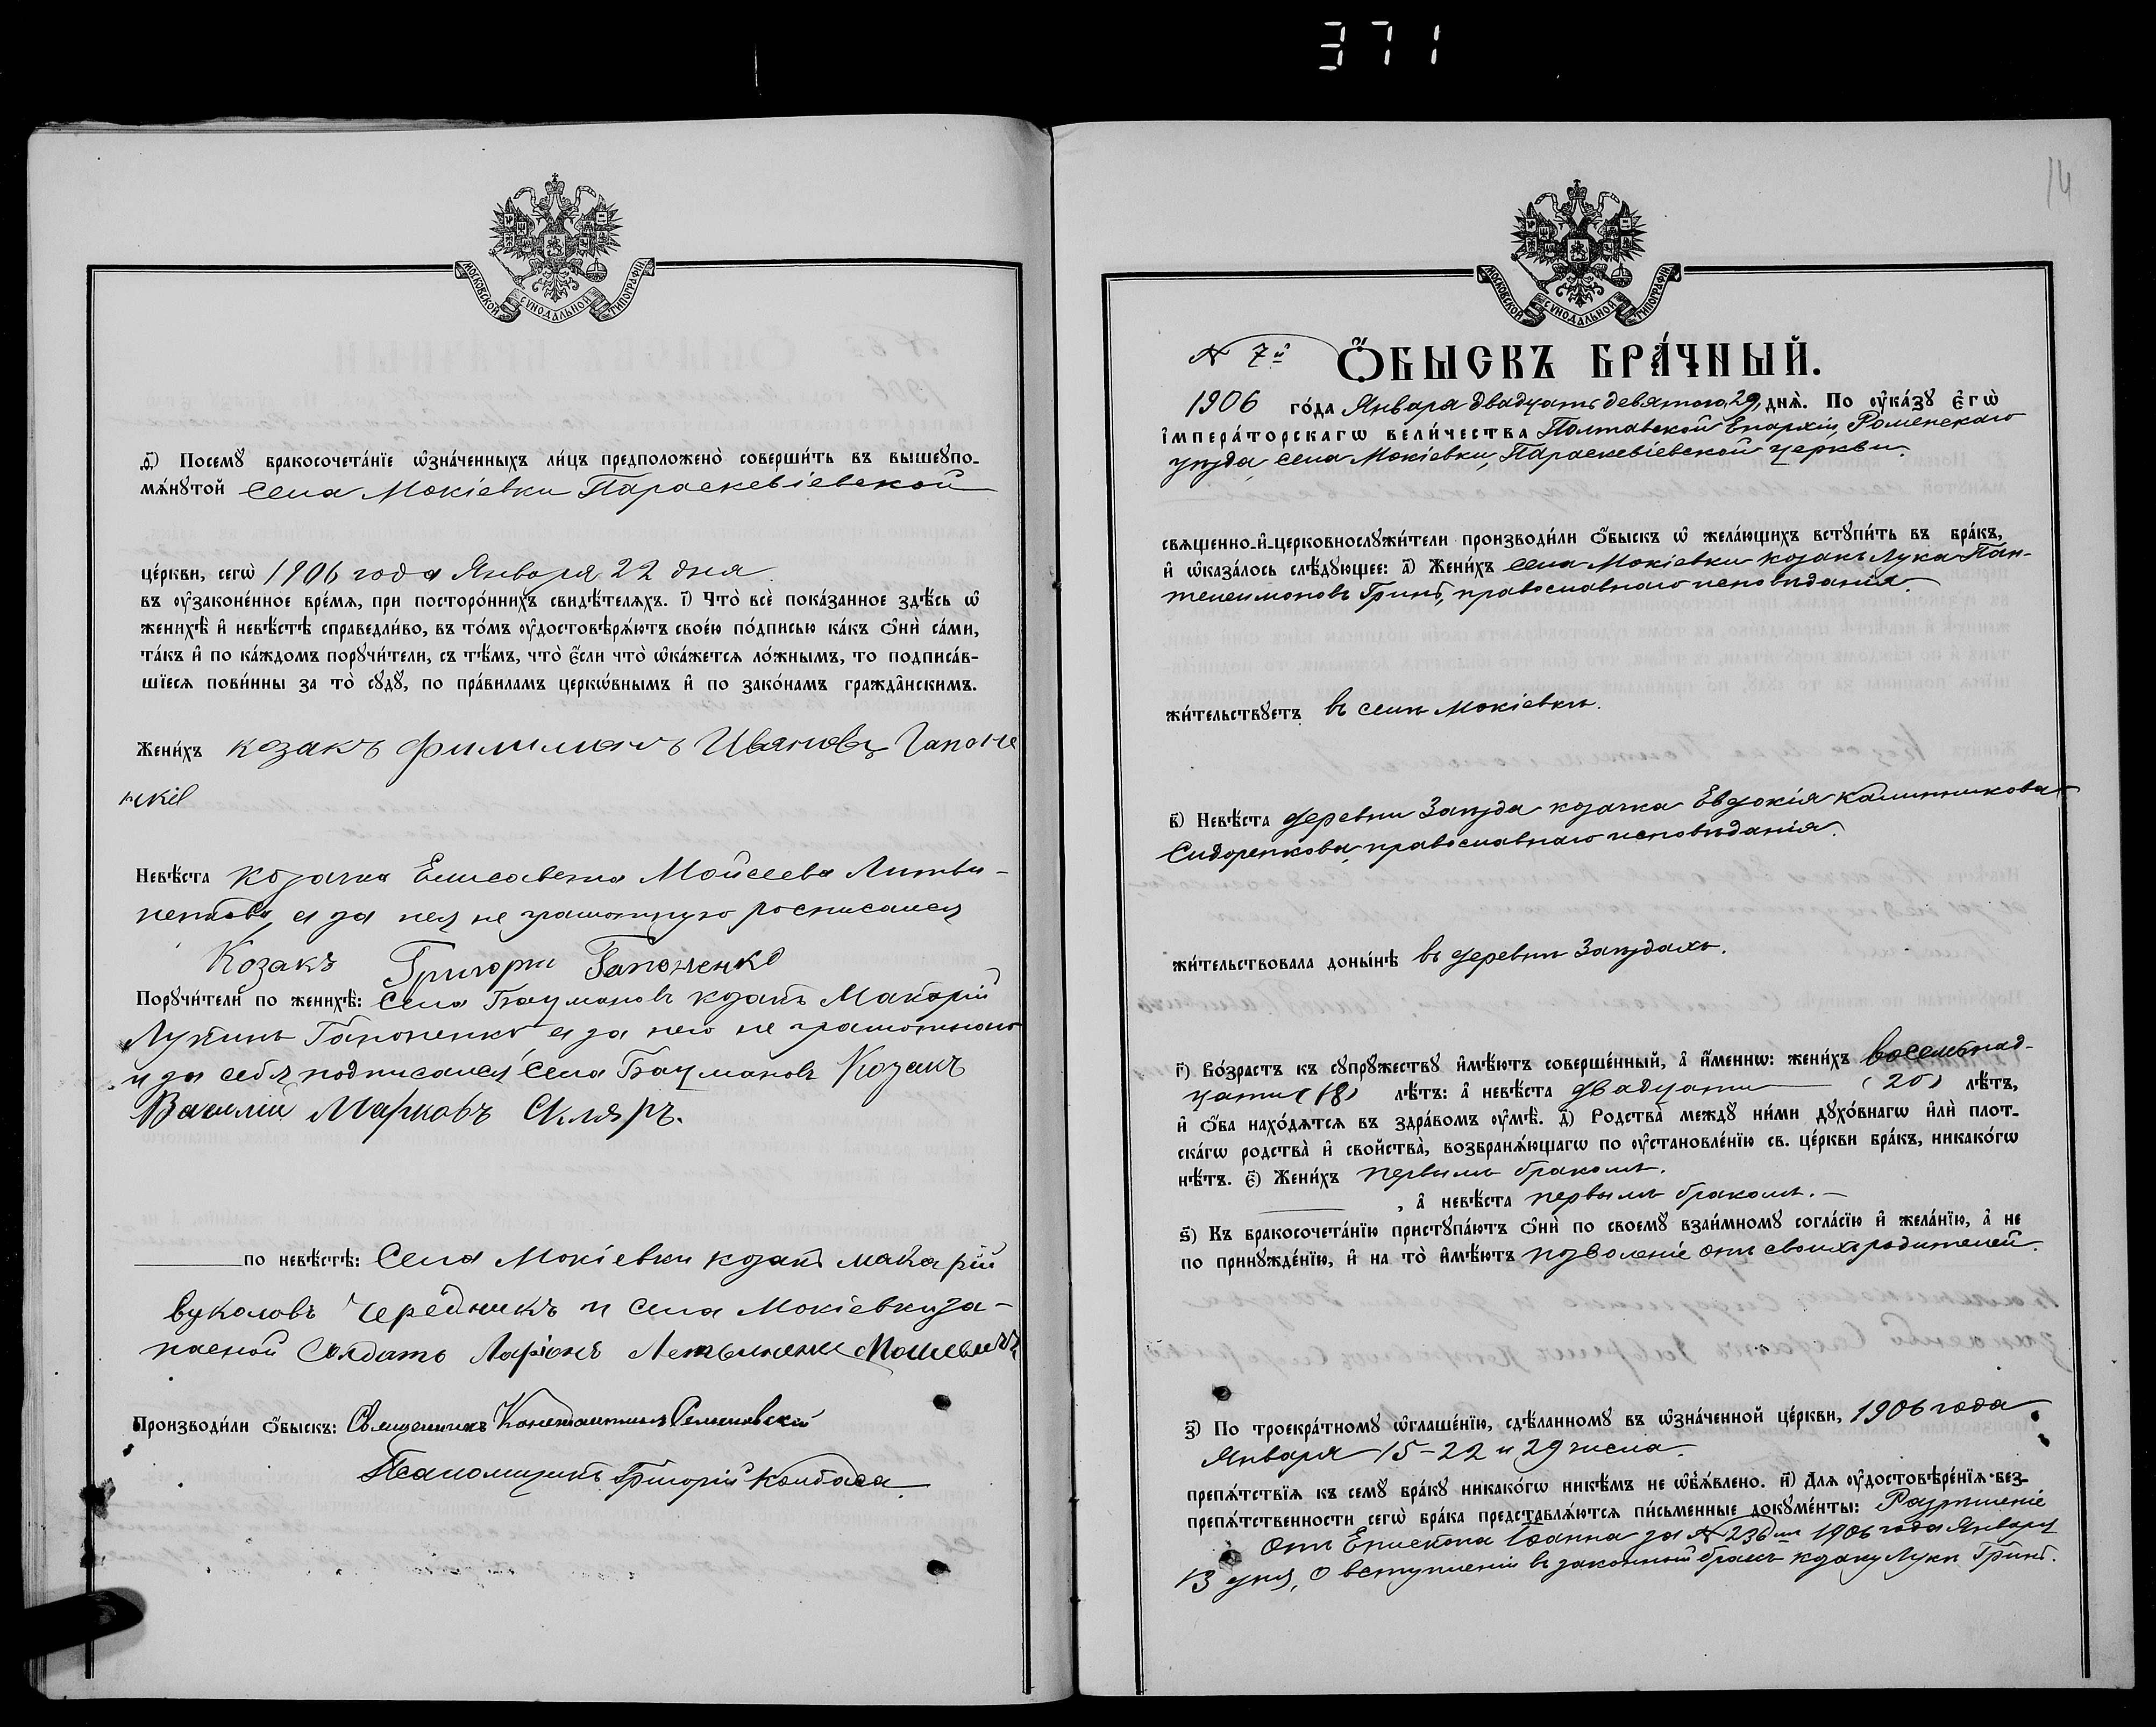 371
МОСКОВСКОЙ СѴНОДАЛЬНОЙ ТИПОГРАФІИ
ѳ҃) Посемꙋ̀ бракосочета́нїе ѡ҆зна́ченныхъ ли́цъ предположено̀ соверши́ть въ вышеꙋпо-
мѧ́нꙋтой Села Мокіевки Параскевіевской
це́ркви, сегѡ̀ 1906 года Января 22 дня
въ ᲂу҆законе́нное вре́мѧ, при посторо́ннихъ свидѣ́телѧхъ. і҃) Что̀ всѐ пока́занное здѣ́сь ѡ҆
женихѣ̀ и҆ невѣ́стѣ справедли́во, въ то́мъ ᲂу҆достовѣрѧ́ютъ свое́ю по́дписью ка́къ ѻ҆нѝ са́ми,
та́къ и҆ по ка́ждомъ порꙋчи́тели, съ тѣ́мъ, что̀ є҆́сли что̀ ѡ҆ка́жетсѧ ло́жнымъ, то подписа́в-
шїесѧ пови́нны за то̀ сꙋдꙋ̀, по пра́виламъ церкѡ́внымъ и҆ по зако́намъ гражда̑нскимъ.
Жени́хъ козакъ Филимонъ Ивановъ Гапоне
нкiв
Невѣ́ста козачка Елисавета Мойсеева Литви-
ненкова, а за нея не грамотную росписался
Козакъ Григори Гапоненко
Порꙋчи́тели по женихѣ̀: Села Бацмановъ козакъ Макарій
Лукинъ Гапоненко а за него не грамотного
и за себя подписался Села Бацмановъ Козакъ
Василій Марковъ Скляръ.
по невѣ́стѣ: Села Мокіевки козакъ Макарій
Вуколовъ Чередникъ и села Мокіевки за-
пасной Солдатъ Ларіонъ
Производи́ли ѻ҆́быскъ: Священникъ Константинъ
Псаломщикъ Григорій Колбаса
14
МОСКОВСКОЙ СѴНОДАЛЬНОЙ ТИПОГРАФІИ
N 7й Ѻ҆́БЫСКЪ БРА́ЧНЫЙ.
1906 го́да Января двадцать девятого, 29, днѧ̀. По ᲂу҆ка́зꙋ є҆гѡ̀
і҆мпера́торскагѡ вели́чества Полтавской Епархіи, Роменскаго
уѣзда, села Мокіевки, Параскевіевской церкви.
свѧщенно-и҆-церковнослꙋжи́тели производи́ли ѻ҆́быскъ ѡ҆ жела́ющихъ встꙋпи́ть въ бра́къ,
и҆ ѡ҆каза́лось слѣ́дꙋющее: а҃) Жени́хъ села Мокіевки козакъ Лука Пан-
телеимоновъ Гринь, православнаго исповѣданія.
жи́тельствꙋетъ въ селѣ Мокіевкѣ.
в҃) Невѣ́ста деревни Заѣзда козачка Евдокія Калинникова
Сидоренкова, православнаго исповѣданія.
жи́тельствовала доны́нѣ въ деревнѣ Заѣздахъ.
г҃) Во́зрастъ къ сꙋпрꙋ́жествꙋ и҆мѣ́ютъ соверше́нный, а҆ и҆́менно: жени́хъ восемнад-
цати (18) лѣ́тъ: а҆ невѣ́ста двадцати (20) лѣ́тъ,
и҆ ѻ҆́ба нахо́дѧтсѧ въ здра́вомъ ᲂу҆мѣ̀. д҃) Родства̀ междꙋ̀ ни́ми дꙋхо́внагѡ и҆лѝ плот-
ска́гѡ родства̀ и҆ свойства̀, возбранѧ́ющагѡ по ᲂу҆становле́нїю св. це́ркви бра́къ, никако́гѡ
нѣ́тъ. є҃) Жени́хъ первымъ бракомъ.
, а҆ невѣ́ста первымъ бракомъ.
ѕ҃) Къ бракосочета́нїю пристꙋпа́ютъ ѻ҆нѝ по своемꙋ̀ взаи́мномꙋ согла́сїю и҆ жела́нїю, а҆ не
по принꙋжде́нїю, и҆ на то̀ и҆мѣ́ютъ позволеніе отъ своихъ родителей.
з҃) По троекра́тномꙋ ѡ҆глаше́нїю, сдѣ́ланномꙋ въ ѡ҆зна́ченной це́ркви, 1906 года
Января 15-22 и 29 числа.
препѧ́тствїѧ къ семꙋ̀ бра́кꙋ никако́гѡ никѣ́мъ не ѡ҆б̾ѧ́влено. и҃) Для ᲂу҆достовѣре́нїѧ без-
препѧ́тственности сегѡ̀ бра́ка представлѧ́ютсѧ пи́сьменные докꙋме́нты: Разрѣшеніе
Отъ Епископа Іоанна за N 236 1906 года Января
13 дня, О вступленіи въ законный бракъ козаку Лукѣ Гринь.